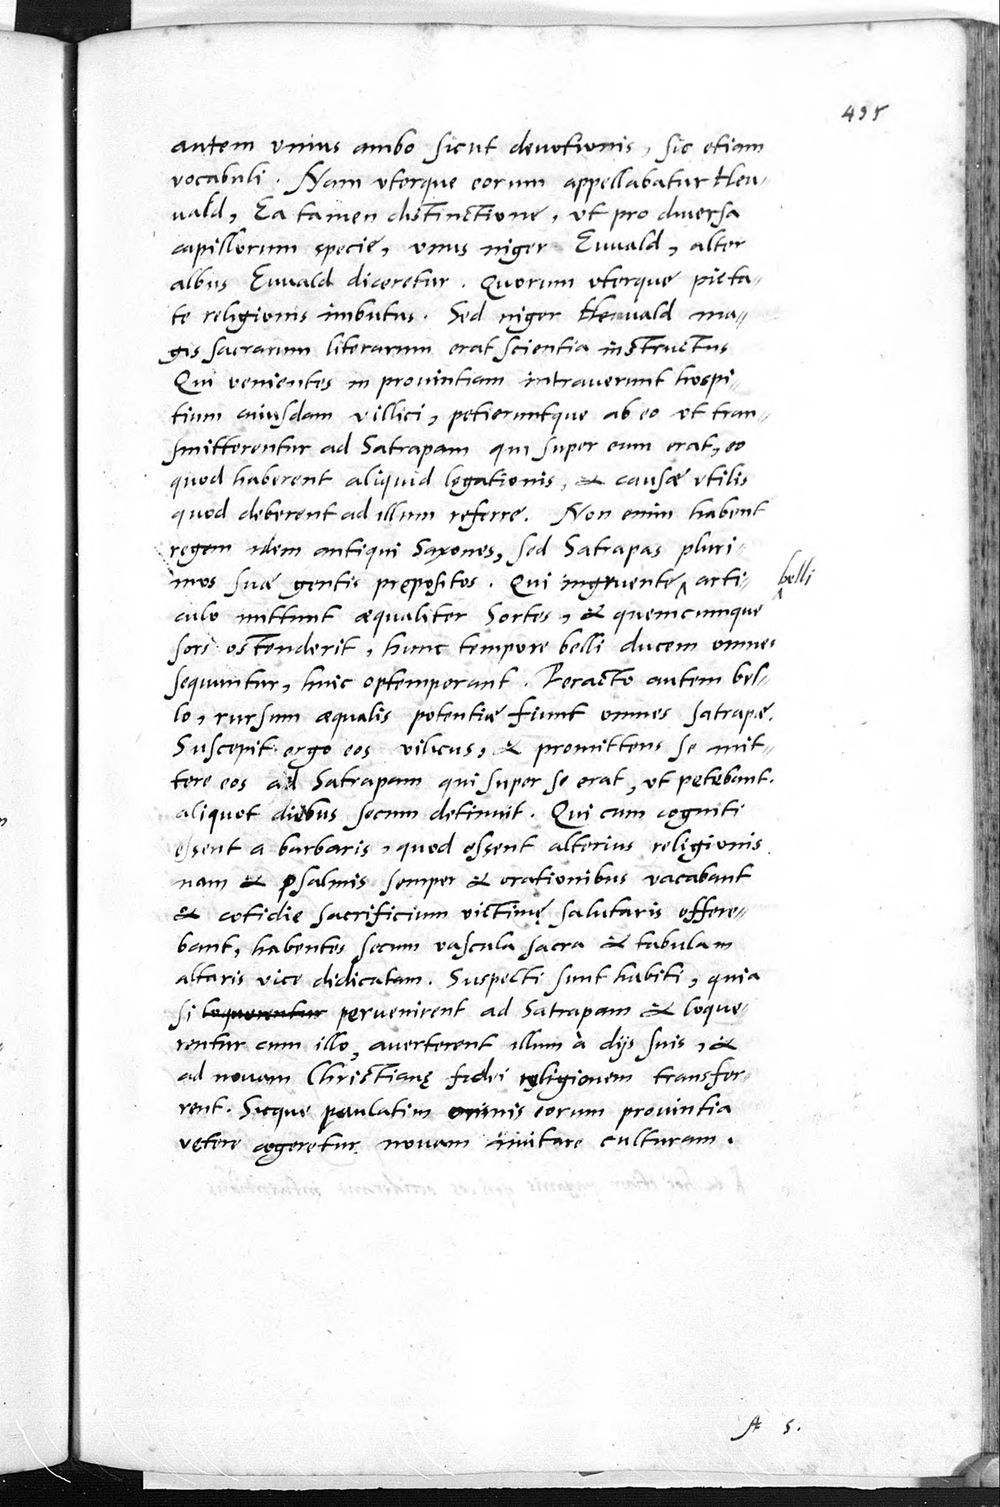 495
autem vnius ambo sicut deuotionis, sic etiam
vocabuli. Nam vterque eorum appellabatur Heu-
uald, Ea tamen distinctione, vt pro diuersa
capillorum specie, vnus niger Euuald, alter
albus Euuald diceretur. Quorum vterque pieta-
te religionis imbutus. Sed niger Heuuald ma-
gis sacrarum literarum erat scientia instructus
Qui venientes in prouintiam intrauerunt hospi-
tium cuiusdam villici, petieruntque ab eo vt tran-
smitterentur ad Satrapam qui super eum erat, eo
quod haberent aliquid legationis, & causæ vtilis
quod deberent ad illum referre. Non enim habent
regem idem antiqui Saxones, sed Satrapas pluri-
mos suæ gentis prępositos. Qui ingruente ^ arti- ^ belli
culo mittunt æqualiter Sortes, & quemcumque
sors ostenderit, hunc tempore belli ducem omnes
sequuntur, huic optemperant. Peracto autem bel-
lo, rursum æqualis potentiæ fiunt omnes satrapæ.
Suscepit ergo eos vilicus, & promittens se mit-
tere eos ad Satrapam qui super se erat, vt petebant.
aliquot diebus secum detinuit. Qui cum cogniti
essent a barbaris, quod essent alterius religionis
nam & psalmis semper & orationibus vacabant
& cotidie sacrificium victimę salutaris offere-
bant, habentes secum vascula sacra & tabulam
altaris vice didicatam. Suspecti sunt habiti, quia
si loquerentur peruenirent ad Satrapam & loque-
rentur cum illo, auerterent illum à dijs suis, &
ad nouam Christianę fidei religionem transfer-
rent. Sicque paulatim omnis eorum prouintia
vetere cogeretur nouam mutare culturam.
A 5.